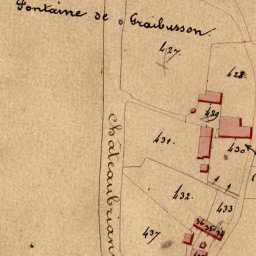 Fontaine de Graibusson
427
428
429
431
430
Châteaubrian
432
433
437